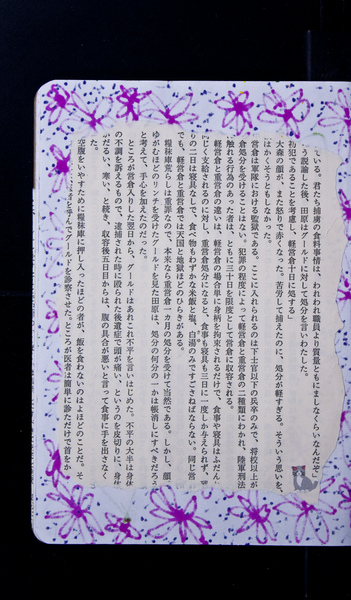 ている。君たち捕虜の食料事情は、われわれ職員より質量ともにましなくらいなんだぞ」
う説論した後、田原はグールドに対して処分を言いわたした。
初犯であることを考慮し、軽営倉十日に処する」
大森の顔が、また怒りで赤くなった。苦労して捕えたのに、処分が軽すぎる。そういう思いを、
はかくそうともしなかった。
営倉は軍隊における監獄である。ここに入れられるのは下士官以下の兵卒のみで、将校以上が
倉処分を受けることはない。犯罪の程度によって軽営倉と重営倉の二種類にわかれ、陸軍刑法
触れる行為のあった者は、ともに三十日を限度として営倉に収容される。
軽営倉と重営倉の違いは、軽営倉の場合単に身柄を拘束されるだけで、食事や寝具はふだん
じく支給されるのに対し、重営倉処分になると、食事も寝具も三日に一度しか与えられず、
の二日は寝具なしで、食べ物もわずかな米飯と塩、白湯のみですごさねばならない。同じ営
でも、軽営倉と重営倉では天国と地獄ほどのひらきがある。
糧秣庫荒らしは重罪なので、本来なら重営倉一カ月の処分を受けて当然である。しかし、顔
ゆがむほどのリンチを受けたグールドを見た田原は、処分の何分の一かは帳消しにすべきだろう
と考えて、手心を加えたのだった。
ところが営倉入りした翌日から、グールドはあれこれ不平を言いはじめた。不平の大半は身体
の不調を訴えるもので、逮捕された時に殴られた後遺症で頭が痛い、というのを皮切りに、身体
がだるい、寒い、と続き、収容後五日目からは、腹の具合が悪いと言って食事に手を出さなく
た。
空腹をいやすために糧秣庫に押し入ったほどの者が、飯を食わないのはよほどのことだ。そ
んでグールドを診察させた。ところが医者は簡単に診ただけで首をか